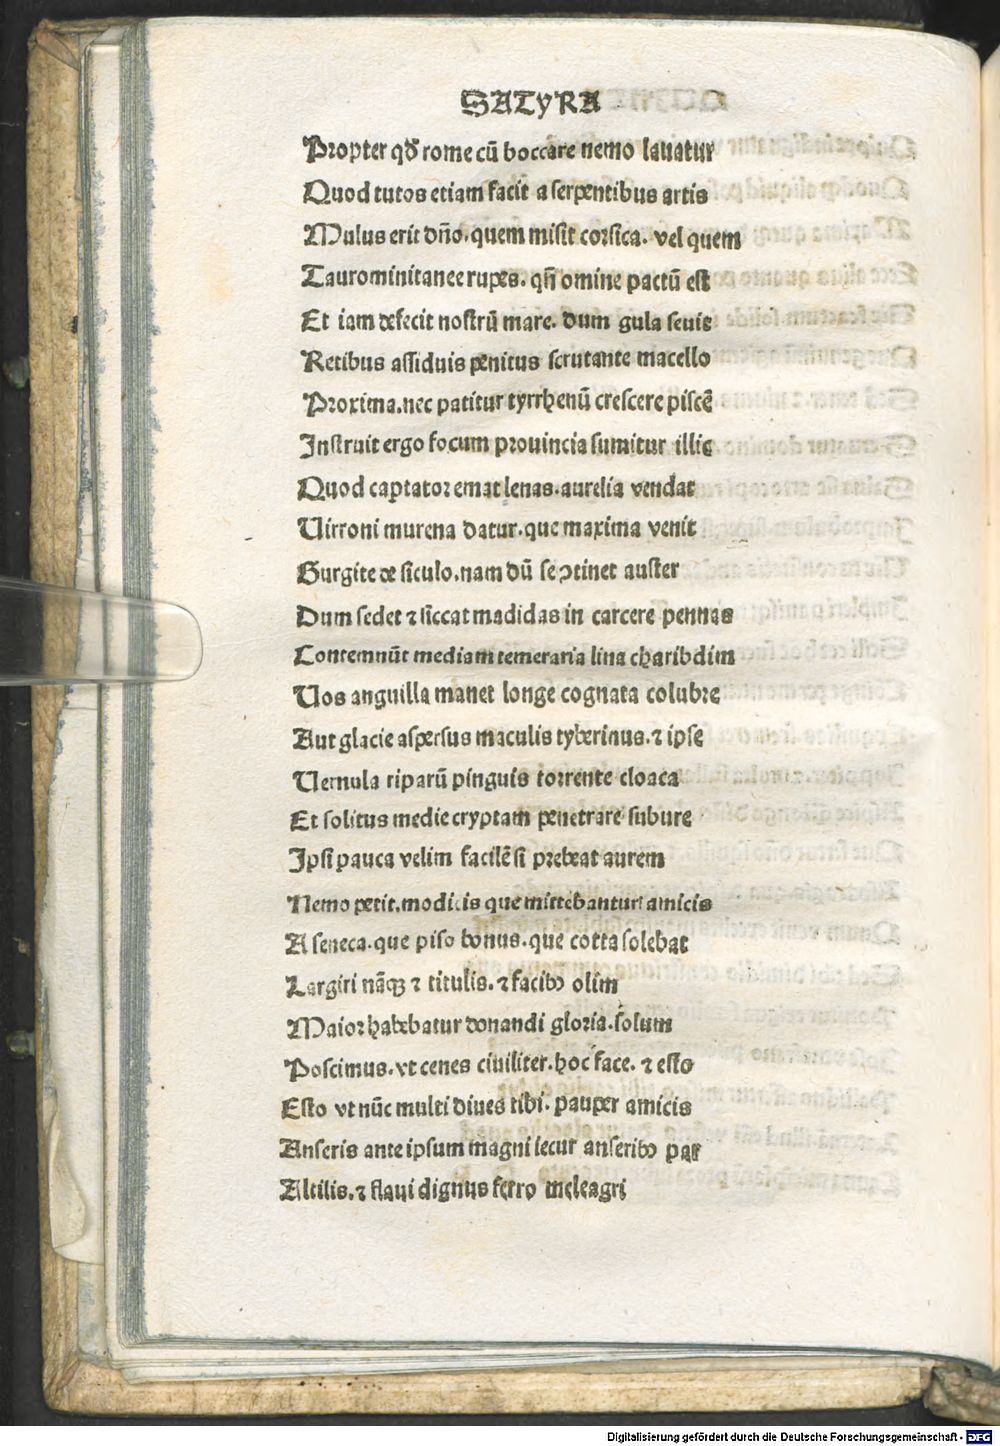 SATYRA
Propter qď rome cū boccare nemo lauatur
Quod tutos etiam facit a serpentibus artis
Mulus erit dño. quem misit corsica. vel quem
Taurominitanee rupes. qñ omine pactū est
Et iam defecit nostrū mare. dum gula seuit
Retibus assiduis penitus scrutante macello
Proxima. nec patitur tyrrhenū crescere piscē
Instruit ergo focum prouincia sumitur illic
Quod captator emat lenas. aurelia vendat
Uirroni murena datur. que maxima venit
Gurgite de siculo. nam dū se ↄtinet auster
Dum sedet ⁊ siccat madidas in carcere pennas
Contemnūt mediam temeraria lina charibdim
Uos anguilla manet longe cognata colubre
Aut glacie aspersus maculis tyberinus. ⁊ ipse
Uernula riparū pinguis torrente cloaca
Et solitus medie cryptam penetrare subure
Ipsi pauca velim facilē si prebeat aurem
Nemo petit. modicis que mittebantur amicis
A seneca. que piso bonus. que cotta solebat
Largiri nāqꝫ ⁊ titulis. ⁊ facibꝰ olim
Maior habebatur donandi gloria. solum
Poscimus. vt cenes ciuiliter. hoc face. ⁊ esto
Esto vt nūc multi diues tibi. pauper amicis
Anseris ante ipsum magni iecur anseribꝰ par
Altilis. ⁊ flaui dignus ferro meleagri
Digitalisierung gefördert durch die Deutsche Forschungsgemeinschaft - DFG